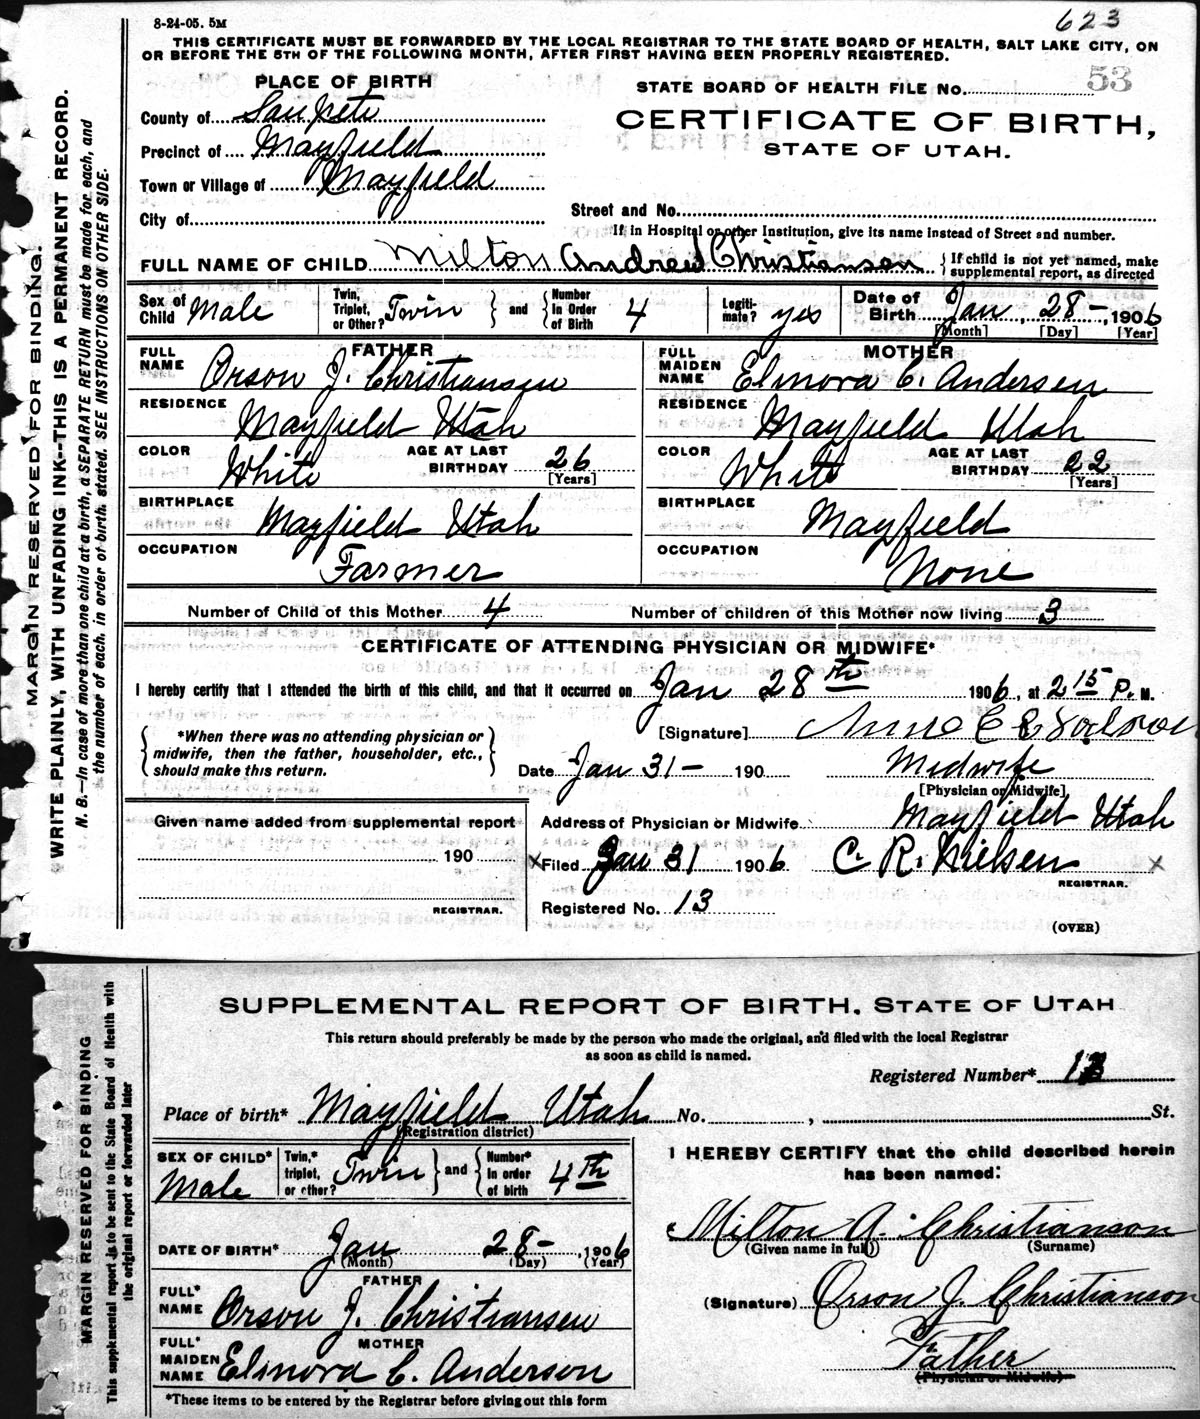 8-24-05. 5M
623
THIS CERTIFICATE MUST BE FORWARDED BY THE LOCAL REGISTRAR TO THE STATE BOARD OF HEALTH, SALT LAKE CITY, ON
OR BEFORE THE 5TH OF THE FOLLOWING MONTH, AFTER FIRST HAVING BEEN PROPERLY REGISTERED.
MARGIN RESERVED FOR BINDING.
WRITE PLAINLY, WITH UNFADING INK--THIS IS A PERMANENT RECORD.
N. B.—In case of more than one child at a birth, a SEPARATE RETURN must be made for each, and
the number of each, in order of birth, stated. SEE INSTRUCTIONS ON OTHER SIDE.
PLACE OF BIRTH
County of Sanpete
Precinct of Mayfield
Town or Village of Mayfield
City of
STATE BOARD OF HEALTH FILE No. 53
CERTIFICATE OF BIRTH,
STATE OF UTAH.
Street and No.
If in Hospital or other Institution, give its name instead of Street and number.
FULL NAME OF CHILD Milton Andrew Christiansen { If child is not yet named, make
supplemental report, as directed
Sex of Child Male Twin, Triplet, or Other? Twin } and { Number in Order of Birth 4 Legiti- mate? yes Date of Birth Jan, 28-, 1906
[Month] [Day] [Year]
FATHER
FULL NAME Orson J. Christiansen
RESIDENCE
Mayfield Utah
COLOR White AGE AT LAST BIRTHDAY 26
[Years]
BIRTHPLACE Mayfield Utah
OCCUPATION Farmer
MOTHER
FULL MAIDEN NAME Elmora C. Andersen
RESIDENCE
Mayfield Utah
COLOR White AGE AT LAST BIRTHDAY 22
[Years]
BIRTHPLACE Mayfield
OCCUPATION None
Number of Child of this Mother 4 Number of children of this Mother now living 3
CERTIFICATE OF ATTENDING PHYSICIAN OR MIDWIFE*
I hereby certify that I attended the birth of this child, and that it occurred on Jan 28th 1906, at 2 15 P. M.
{ *When there was no attending physician or
midwife, then the father, householder, etc.,
should make this return. }
[Signature]
Date Jan 31- 190 Midwife
[Physician or Midwife]
Address of Physician or Midwife Mayfield Utah
Given name added from supplemental report
190
REGISTRAR.
x Filed Jan 31 1906 C. R. Nielsen x
REGISTRAR.
Registered No. 13
(OVER)
MARGIN RESERVED FOR BINDING
This supplemental report is to be sent to the State Board of Health with
the original report or forwarded later
SUPPLEMENTAL REPORT OF BIRTH, STATE OF UTAH
This return should preferably be made by the person who made the original, and filed with the local Registrar
as soon as child is named.
Registered Number* 13
Place of birth* Mayfield Utah No. , St.
(Registration district)
SEX OF CHILD* Male Twin,* triplet, or other? Twin } and { Number* in order of birth 4th
DATE OF BIRTH* Jan 28- , 1906
(Month) (Day) (Year)
FATHER
FULL* NAME Orson J. Christiansen
MOTHER
FULL* MAIDEN NAME Elmora C. Anderson
*These items to be entered by the Registrar before giving out this form
I HEREBY CERTIFY that the child described herein
has been named:
Milton A. Christianson
(Given name in full) (Surname)
(Signature) Orson J. Christianson
Father
(Physician or Midwife)